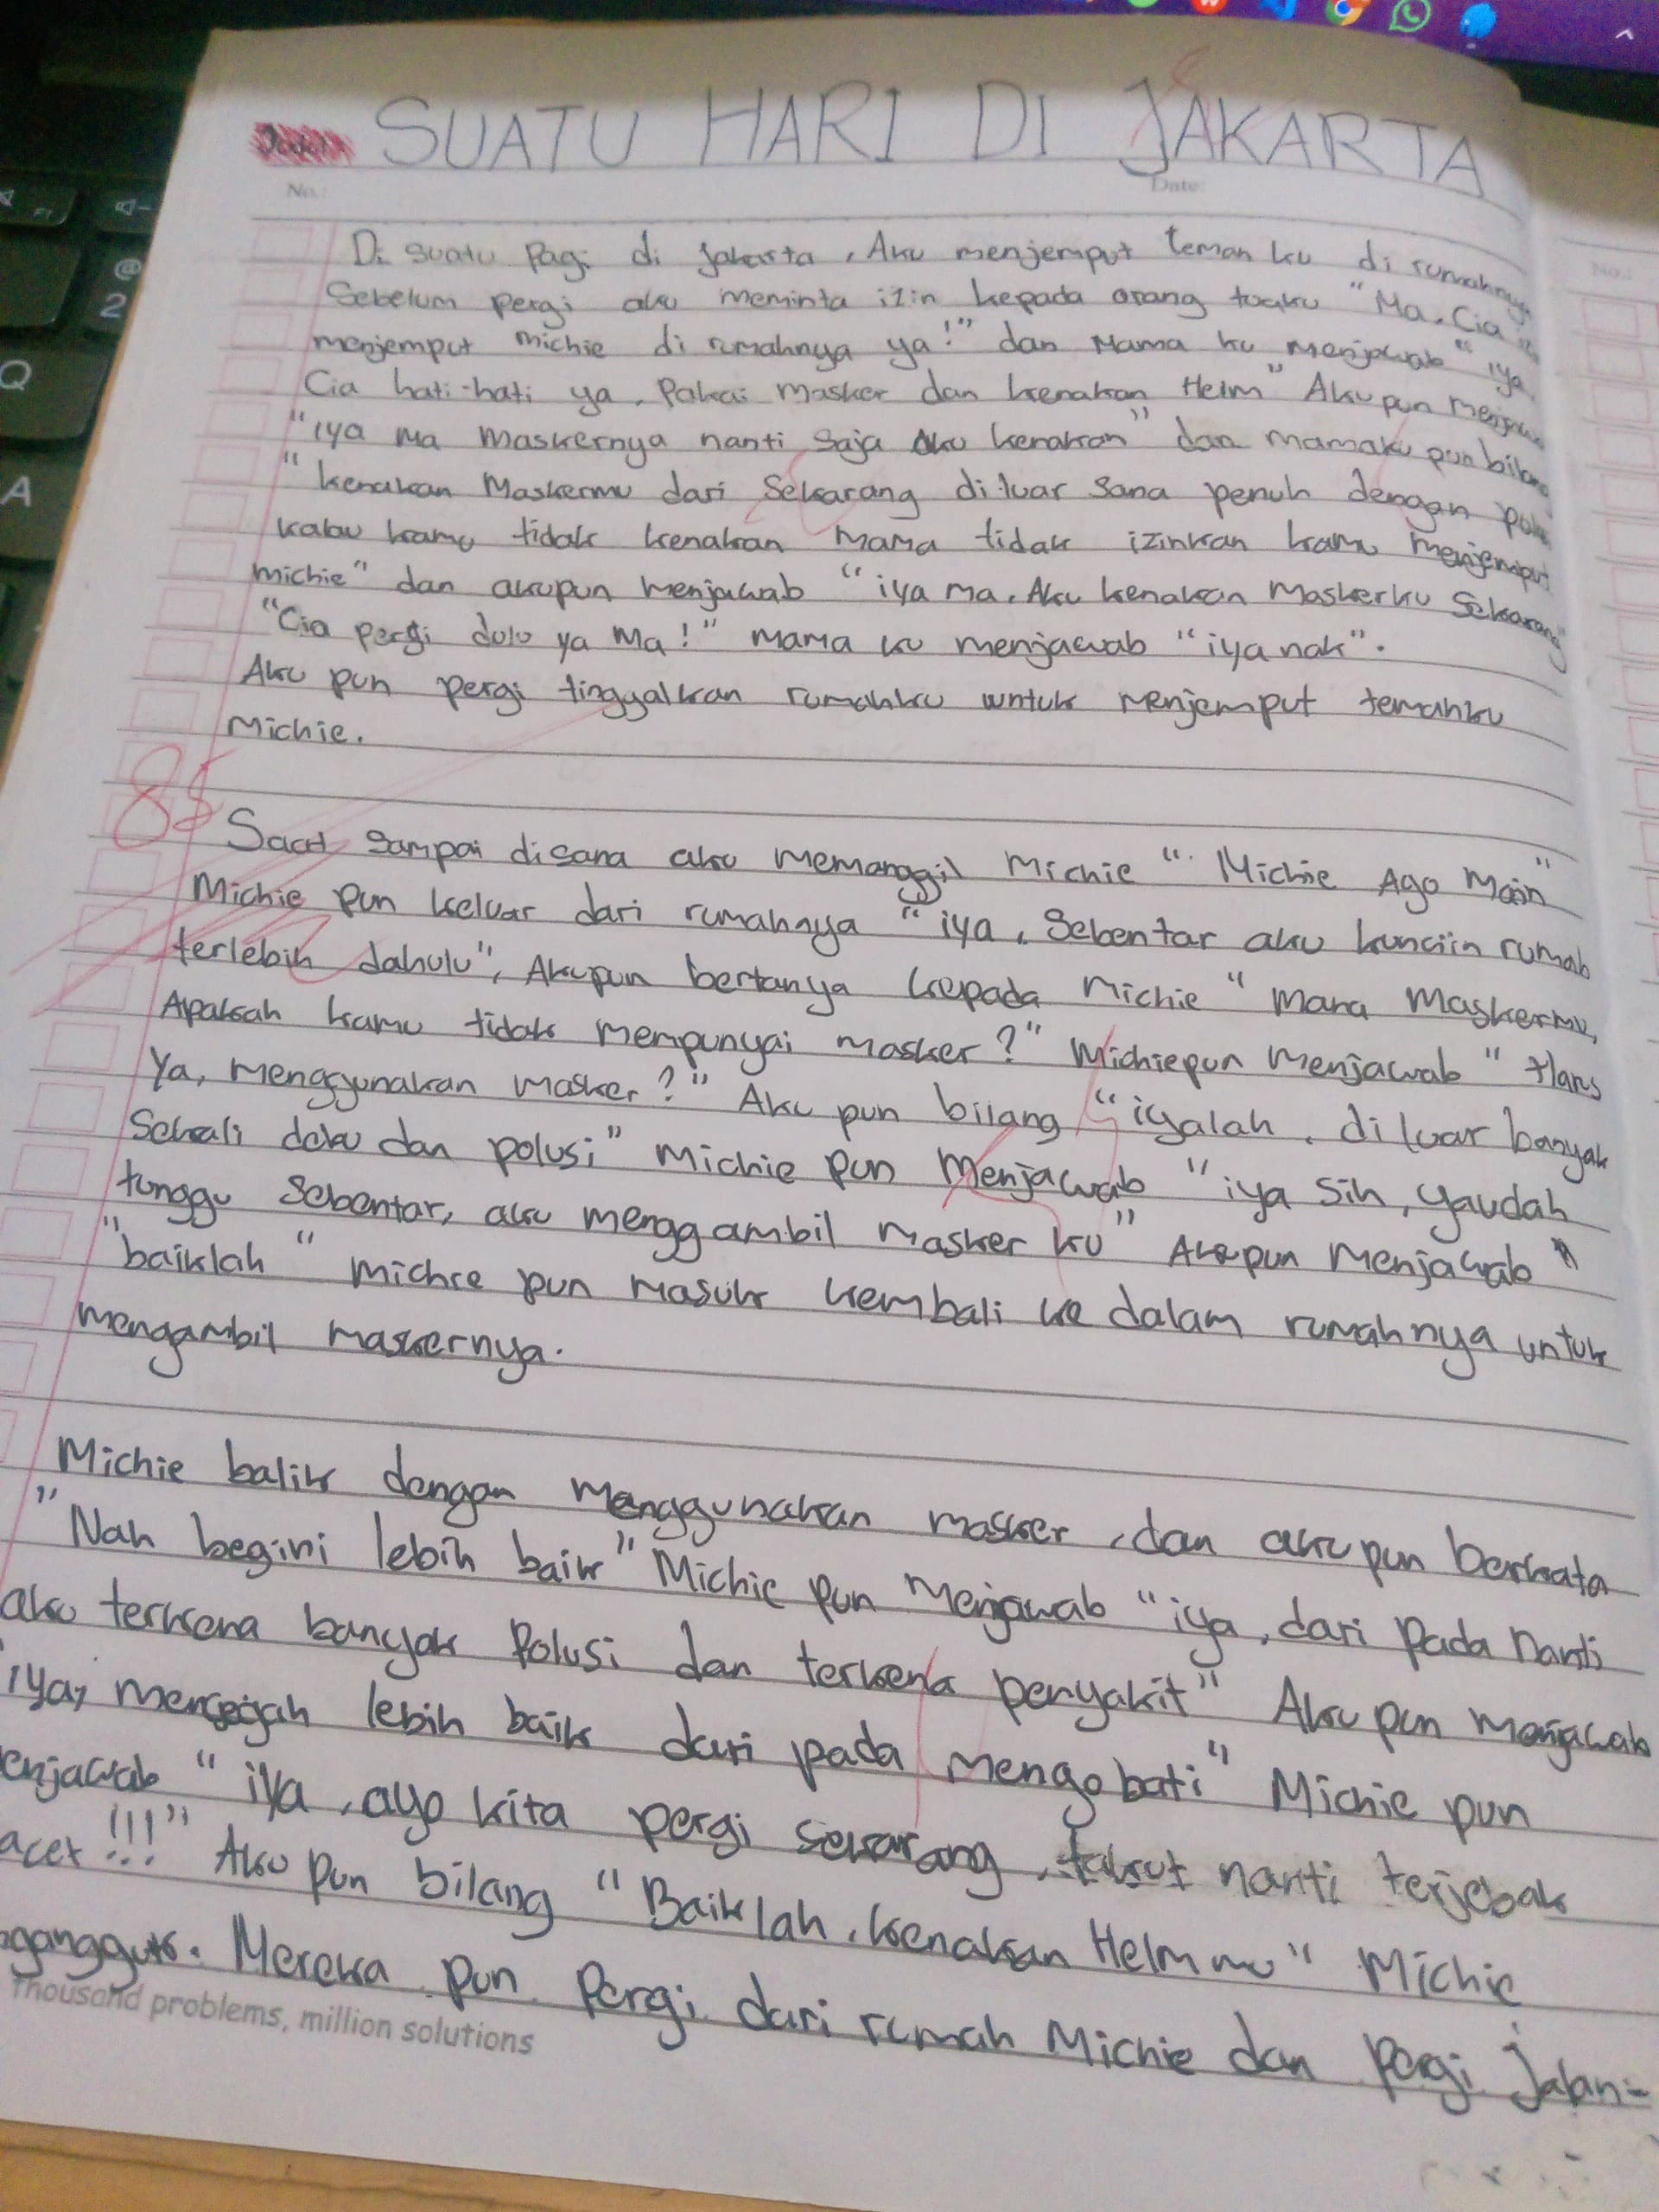 SUATU HARI DI JAKARTA
No.:
Date:
No.:
Di suatu Pagi di Jakarta, Aku menjemput teman ku di rumahnya
Sebelum pergi aku meminta izin kepada orang tuaku "Ma, Cia
menjemput michie di rumahnya ya!" dan Mama ku menjawab "iya
Cia hati-hati ya, Pakai Masker dan kenakan Helm" Aku pun
"iya ma maskernya nanti saja aku kenakan" dan mamaku pun
"kenakan Maskermu dari Sekarang diluar sana penuh dengan
kalau kamu tidak kenakan Mama tidak izinkan kamu menjemput
michie" dan akupun menjawab "iya ma, Aku kenakan Maskerku Sekarang"
"Cia pergi dulu ya Ma!" mama ku menjawab "iya nak".
Aku pun pergi tinggalkan rumahku untuk menjemput temanku
Michie.
Saat Sampai disana aku memanggil Michie " Michie Ayo Main"
Michie pun keluar dari rumahnya "iya, Sebentar aku kunciin rumah
terlebih dahulu", Akupun bertanya kepada Michie "mana Maskermu,
Apakah kamu tidak mempunyai masker?" Michiepun Menjawab "Harus
Ya, menggunakan masker?" Aku pun bilang "iyalah, diluar banyak
Sekali debu dan polusi" Michie pun Menjawab "iya sih, yaudah
tunggu Sebentar, aku menggambil masker ku" Akupun Menjawab
"baiklah" michie pun masuk kembali ke dalam rumahnya untuk
mengambil maskernya.
Michie balik dengan Menggunakan masker, dan aku pun berkata
"Nah begini lebih baik" Michie pun Menjawab "iya, dari pada nanti
aku terkena banyak Polusi dan terkena penyakit" Aku pun Menjawab
iya, mencegah lebih baik dari pada mengobati" Michie pun
enjawab "iya, ayo kita pergi sekarang, takut nanti terjebak
acet !!!" Aku pun bilang "Baiklah, kenakan Helmmu" Michie
ngangguk. Mereka pun Pergi dari rumah Michie dan pergi jalan-
Thousand problems, million solutions